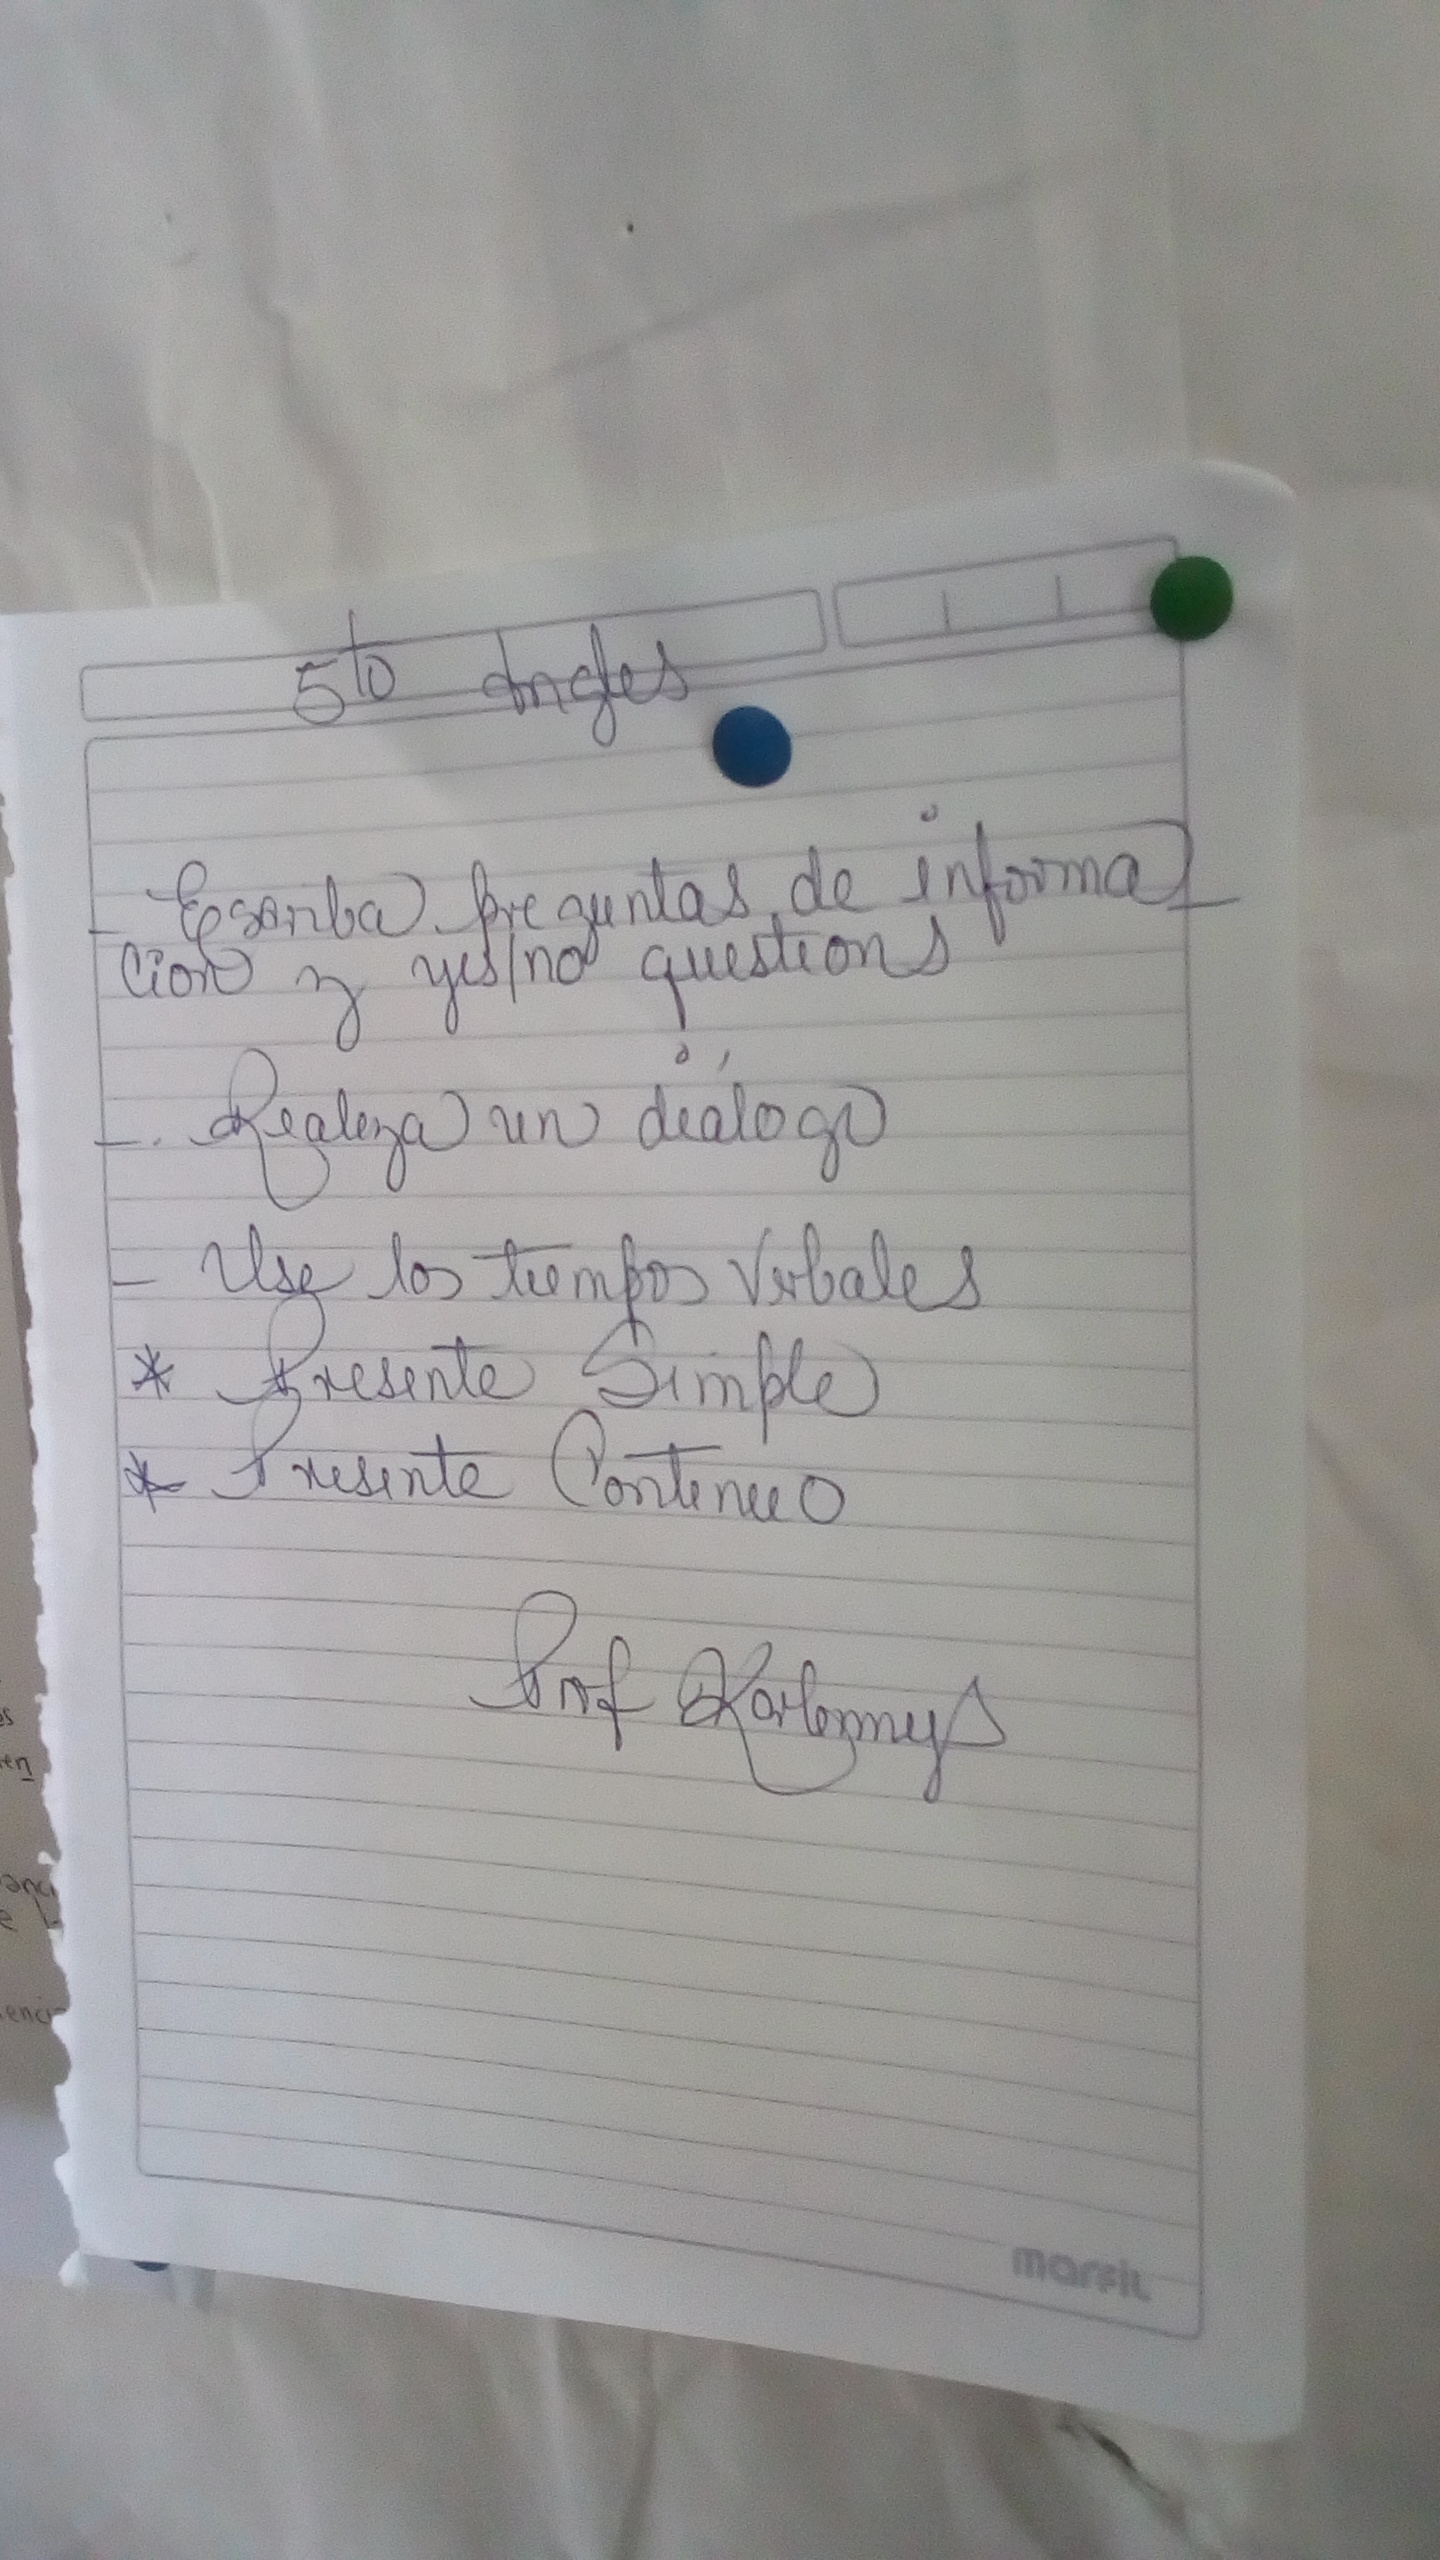 5to Ingles
- Escriba preguntas de informa_
cion y yes/no questions
- . Realiza un diálogo
- Use los tiempos verbales
* Presente Simple
* Presente Continuo
Prof Karlennys
es
en
anci
e L
enci
marfil